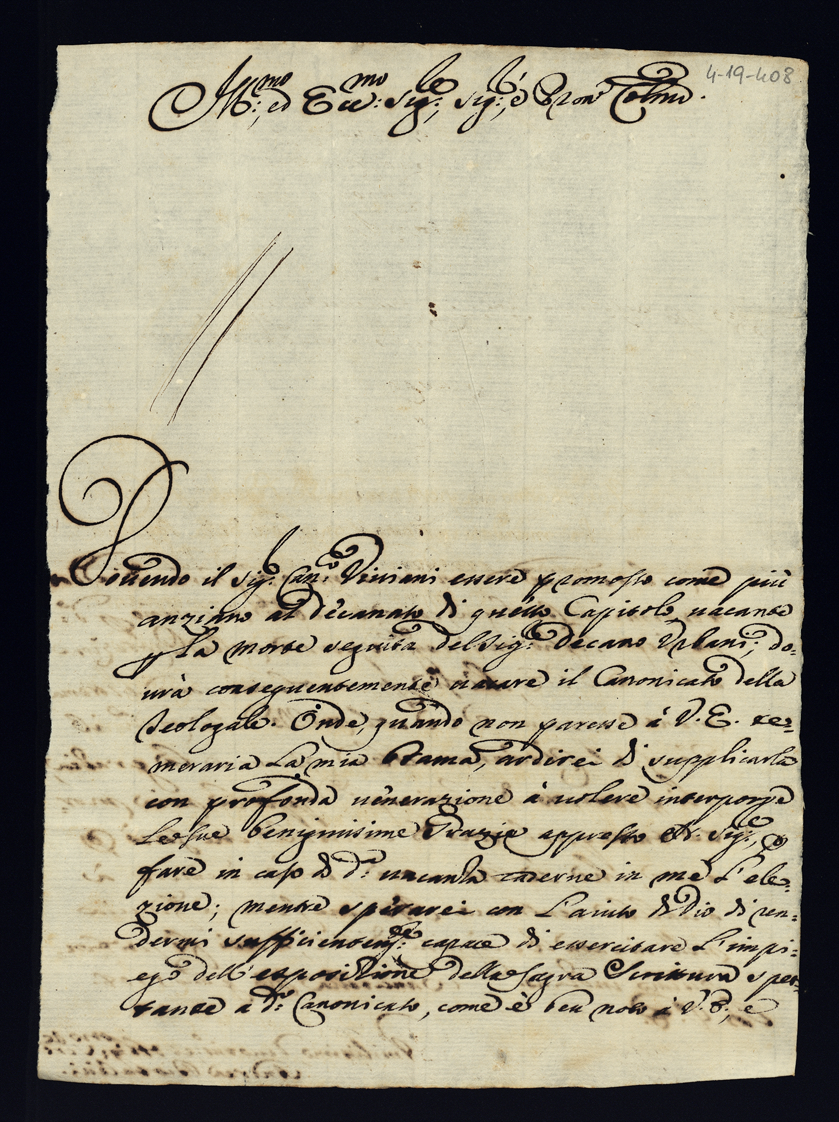 4-19-408
Ill:mo, ed Ecc:mo Sig:re, Sig:re, e Pron Colmo.
Dovendo il Sig:r Can:co Viviani essere promosso come più
anziano al Decanato di questo Capitolo, vacante
p la morte seguita del Sig:r Decano Urbani; do=
urà conseguentemente vacare il Canonicato della
Teologale. Onde, quando non paresse à V. E. te=
meraria La mia Brama, ardirei di supplicarla
con profonda venerazione à volere interporre
Le sue benignissime Grazie appresso
fare in caso di d:a vacanza caderne in me L'ele=
zione; mentre sperarei con L'aiuto di Dio di ren=
dermi sufficientem:te capace di essercitare L'impi=
ego dell'espositione della Sagra Scrittura spet=
tante a d:o Canonicato, come è ben noto à V. E., e